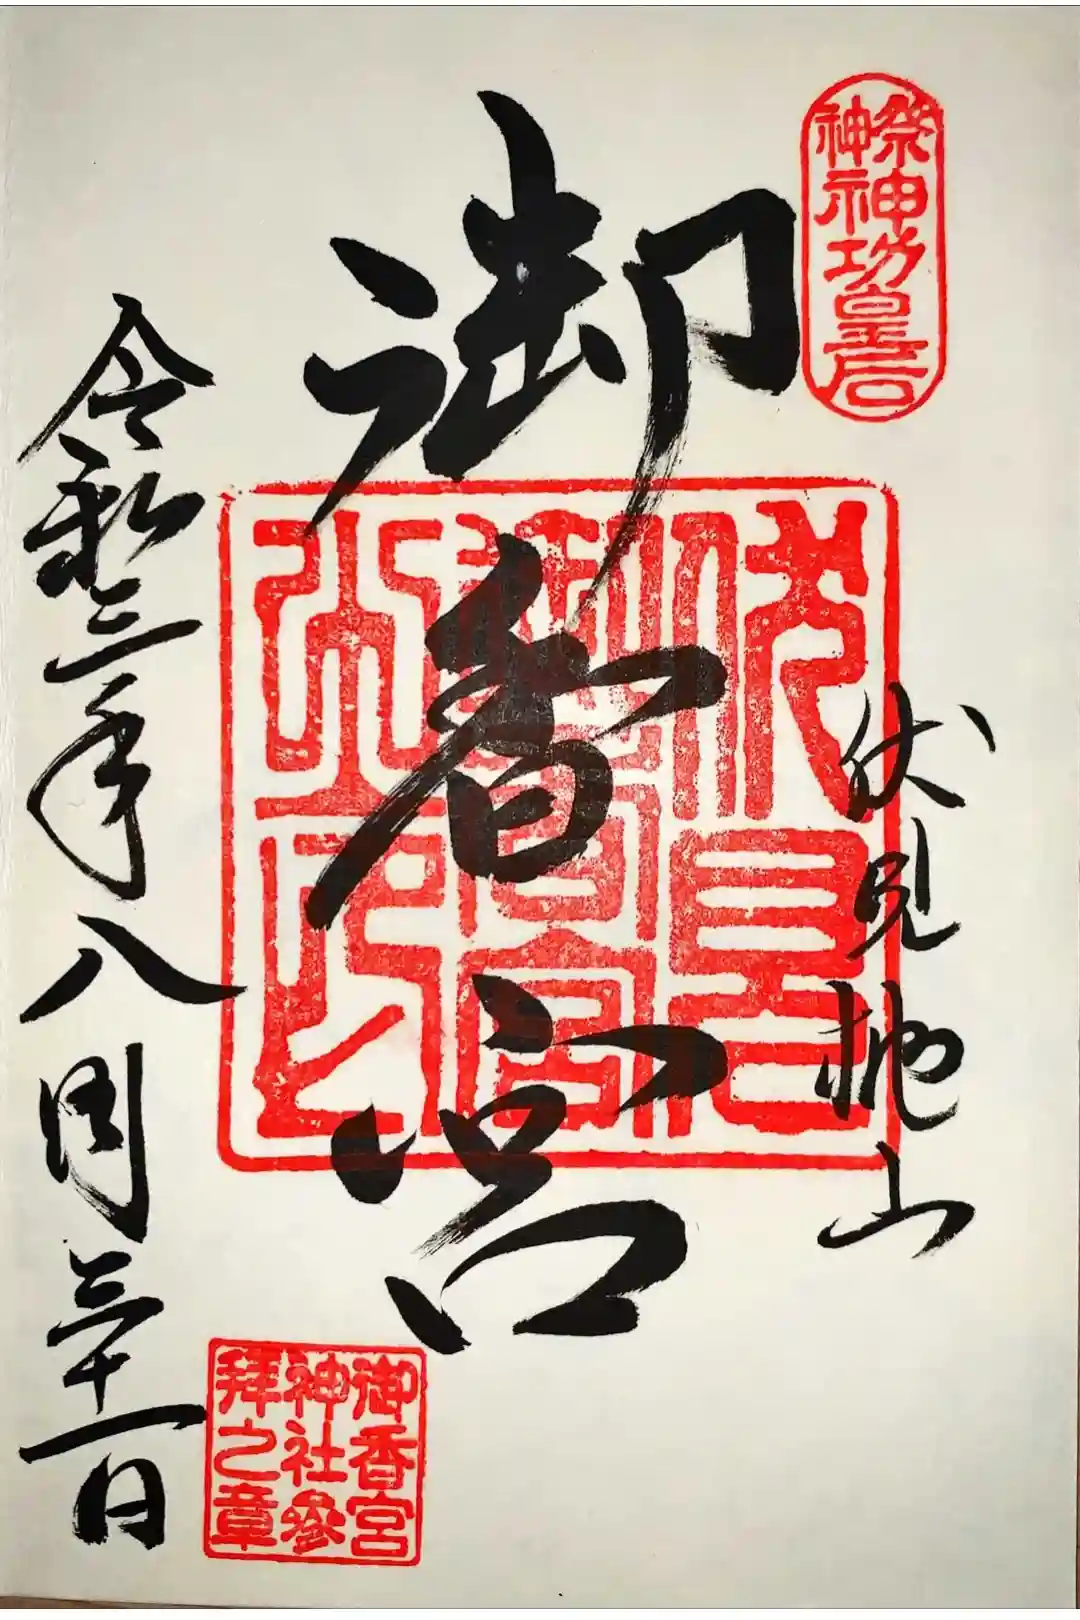 祭神
神功皇后
伏見桃山
御香宮
伏見
御香宮
印
令和三年八月三十一日
御香宮
神社參
拜之章